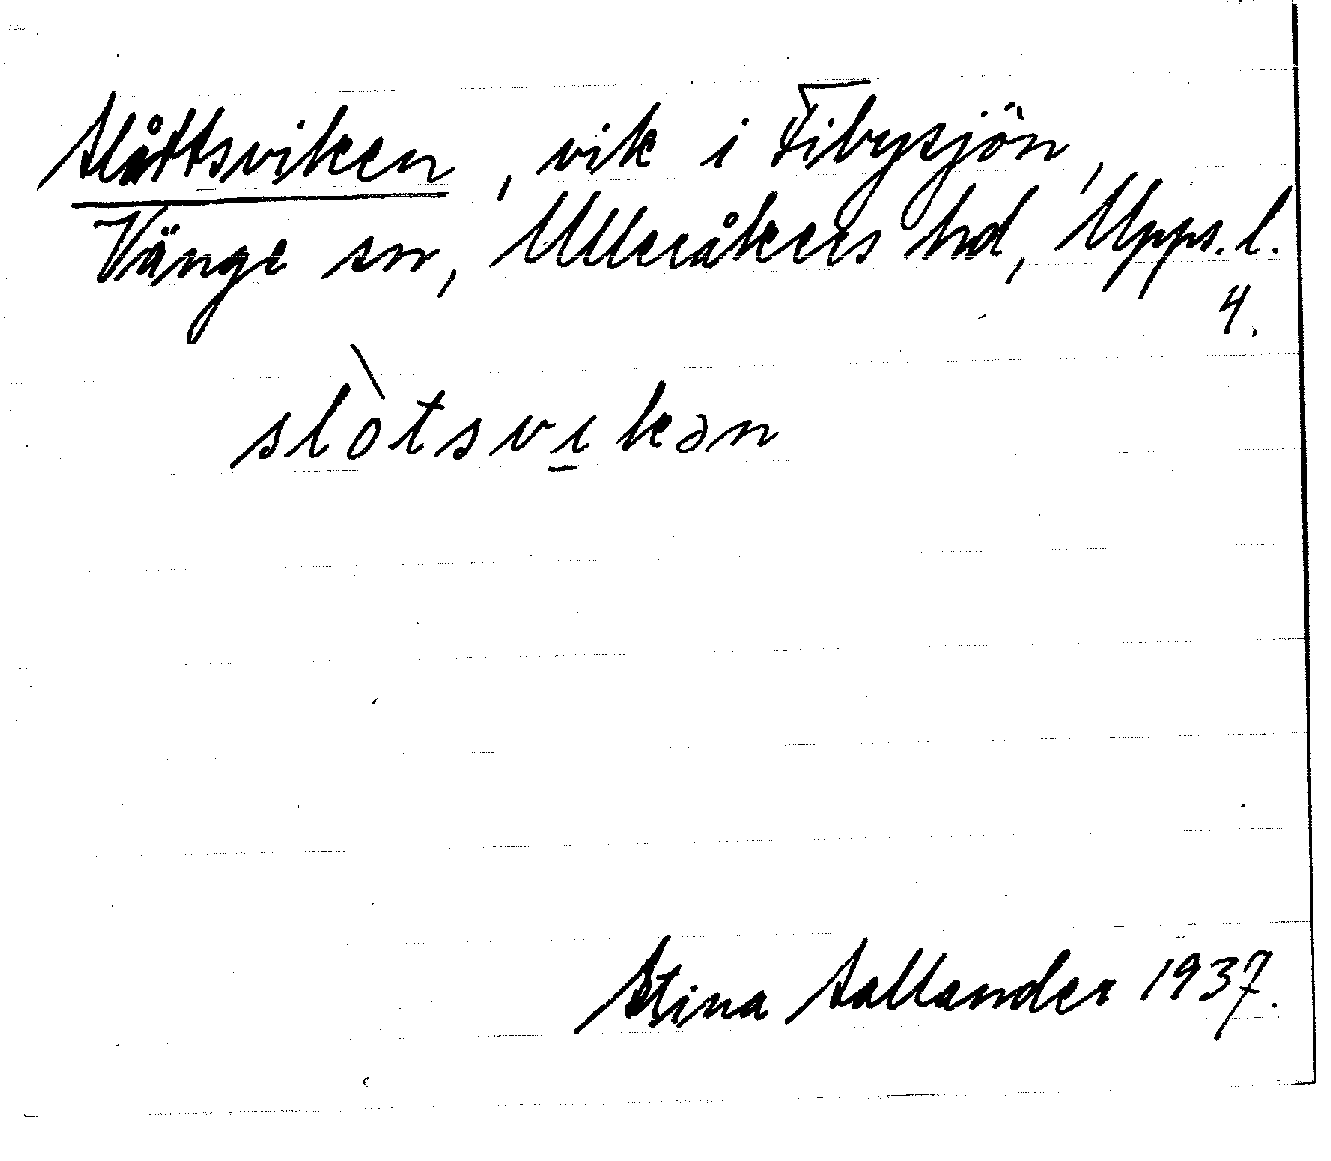 Slåttsviken, vik i Fibysjön,
Vänge sn, Ulleråkers hd, Upps. l.
4.
slòtsvi̱kən
Stina Sallander 1937.